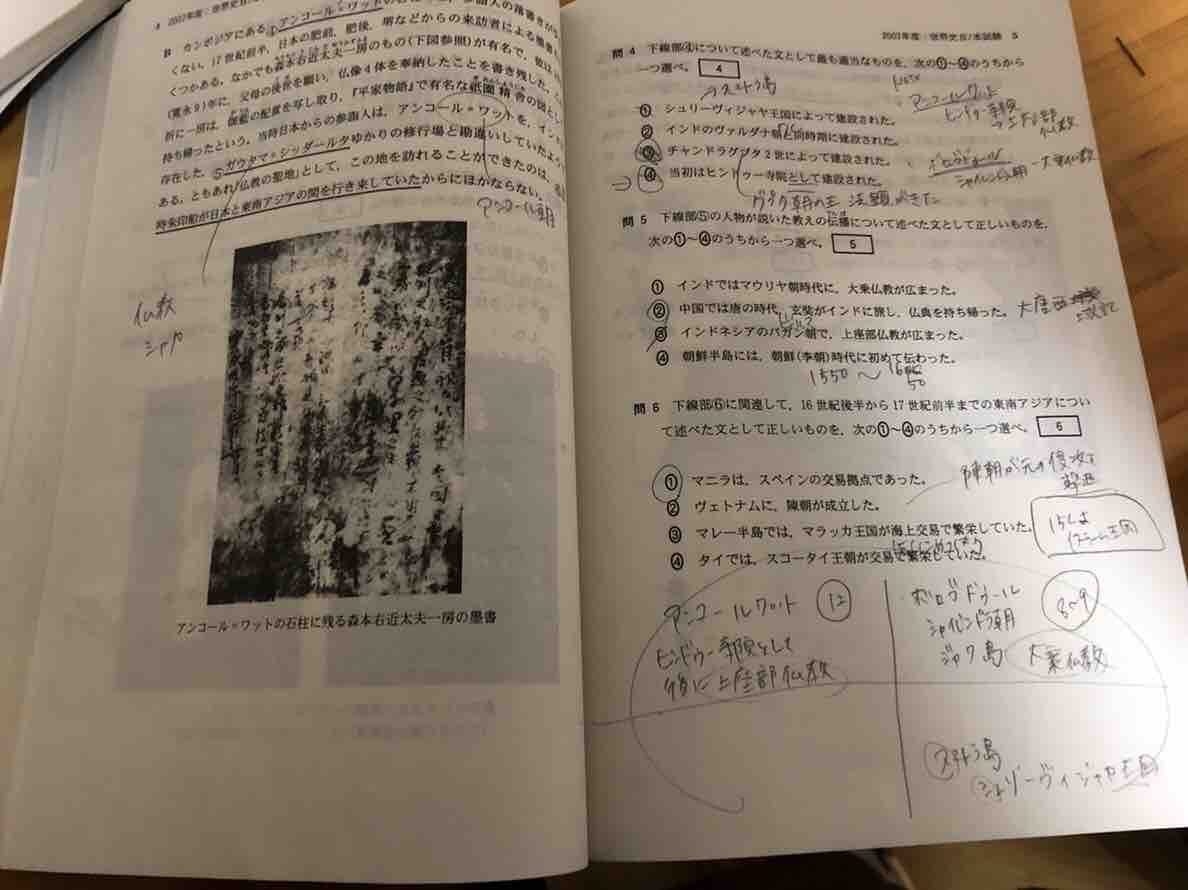 4 2007年度:世界史
B カンボジアにある④アンコール=ワットの
くない。17世紀前半,日本の肥前,肥後,堺などからの来訪者による墨書
くつかある。なかでも森本右近太夫一房のもの(下図参照)が有名で,彼は
(寛永9)年に,父母の後世を願い,仏像4体を奉納したことを書き残した。
折に一房は,伽藍の配置を写し取り,『平家物語』で有名な祇園精舎の図とし
持ち帰ったという。当時日本からの参詣人は,アンコール=ワットを,イン
存在した,⑤ガウタマ=シッダールタゆかりの修行場と勘違いしていたよう
ある。ともあれ「仏教の聖地」として,この地を訪れることができたのは,
時朱印船が日本と東南アジアの間を行き来していたからにほかならない。
アンコール朝
仏教
シャカ
アンコール=ワットの石柱に残る森本右近太夫一房の墨書
2007年度:世界史B/本試験 5
問4 下線部④について述べた文として最も適当なものを,次の①~④のうちから
一つ選べ。 4
スマトラ島
アンコールワット
ヒンドゥー寺院
→上座部
仏教
① シュリーヴィジャヤ王国によって建設された。
② インドのヴァルダナ朝と同時期に建設された。
③ チャンドラグプタ2世によって建設された。
④ 当初はヒンドゥー寺院として建設された。
ボロブドゥール
シャイレンドラ朝 - 大乗仏教
グプタ朝の王 法顕がきた
問5 下線部⑤の人物が説いた教えの伝播について述べた文として正しいものを,
次の①~④のうちから一つ選べ。 5
① インドではマウリヤ朝時代に,大乗仏教が広まった。
② 中国では唐の時代,玄奘がインドに旅し,仏典を持ち帰った。
大唐西域記
③ インドネシアのパガン朝で,上座部仏教が広まった。
④ 朝鮮半島には,朝鮮(李朝)時代に初めて伝わった。
1550~1650
問6 下線部⑥に関連して,16世紀後半から17世紀前半までの東南アジアについ
て述べた文として正しいものを,次の①~④のうちから一つ選べ。 6
陳朝が元の侵攻を
撃退
① マニラは,スペインの交易拠点であった。
② ヴェトナムに,陳朝が成立した。
③ マレー半島では,マラッカ王国が海上交易で繁栄していた。
④ タイでは,スコータイ王朝が交易で繁栄していた。
15Cは
イスラーム王国
アンコールワット 12
ヒンドゥー寺院として
後に上座部仏教
ボロブドゥール 8~9
シャイレンドラ朝
ジャワ島 大乗仏教
スマトラ島
シュリーヴィジャヤ王国